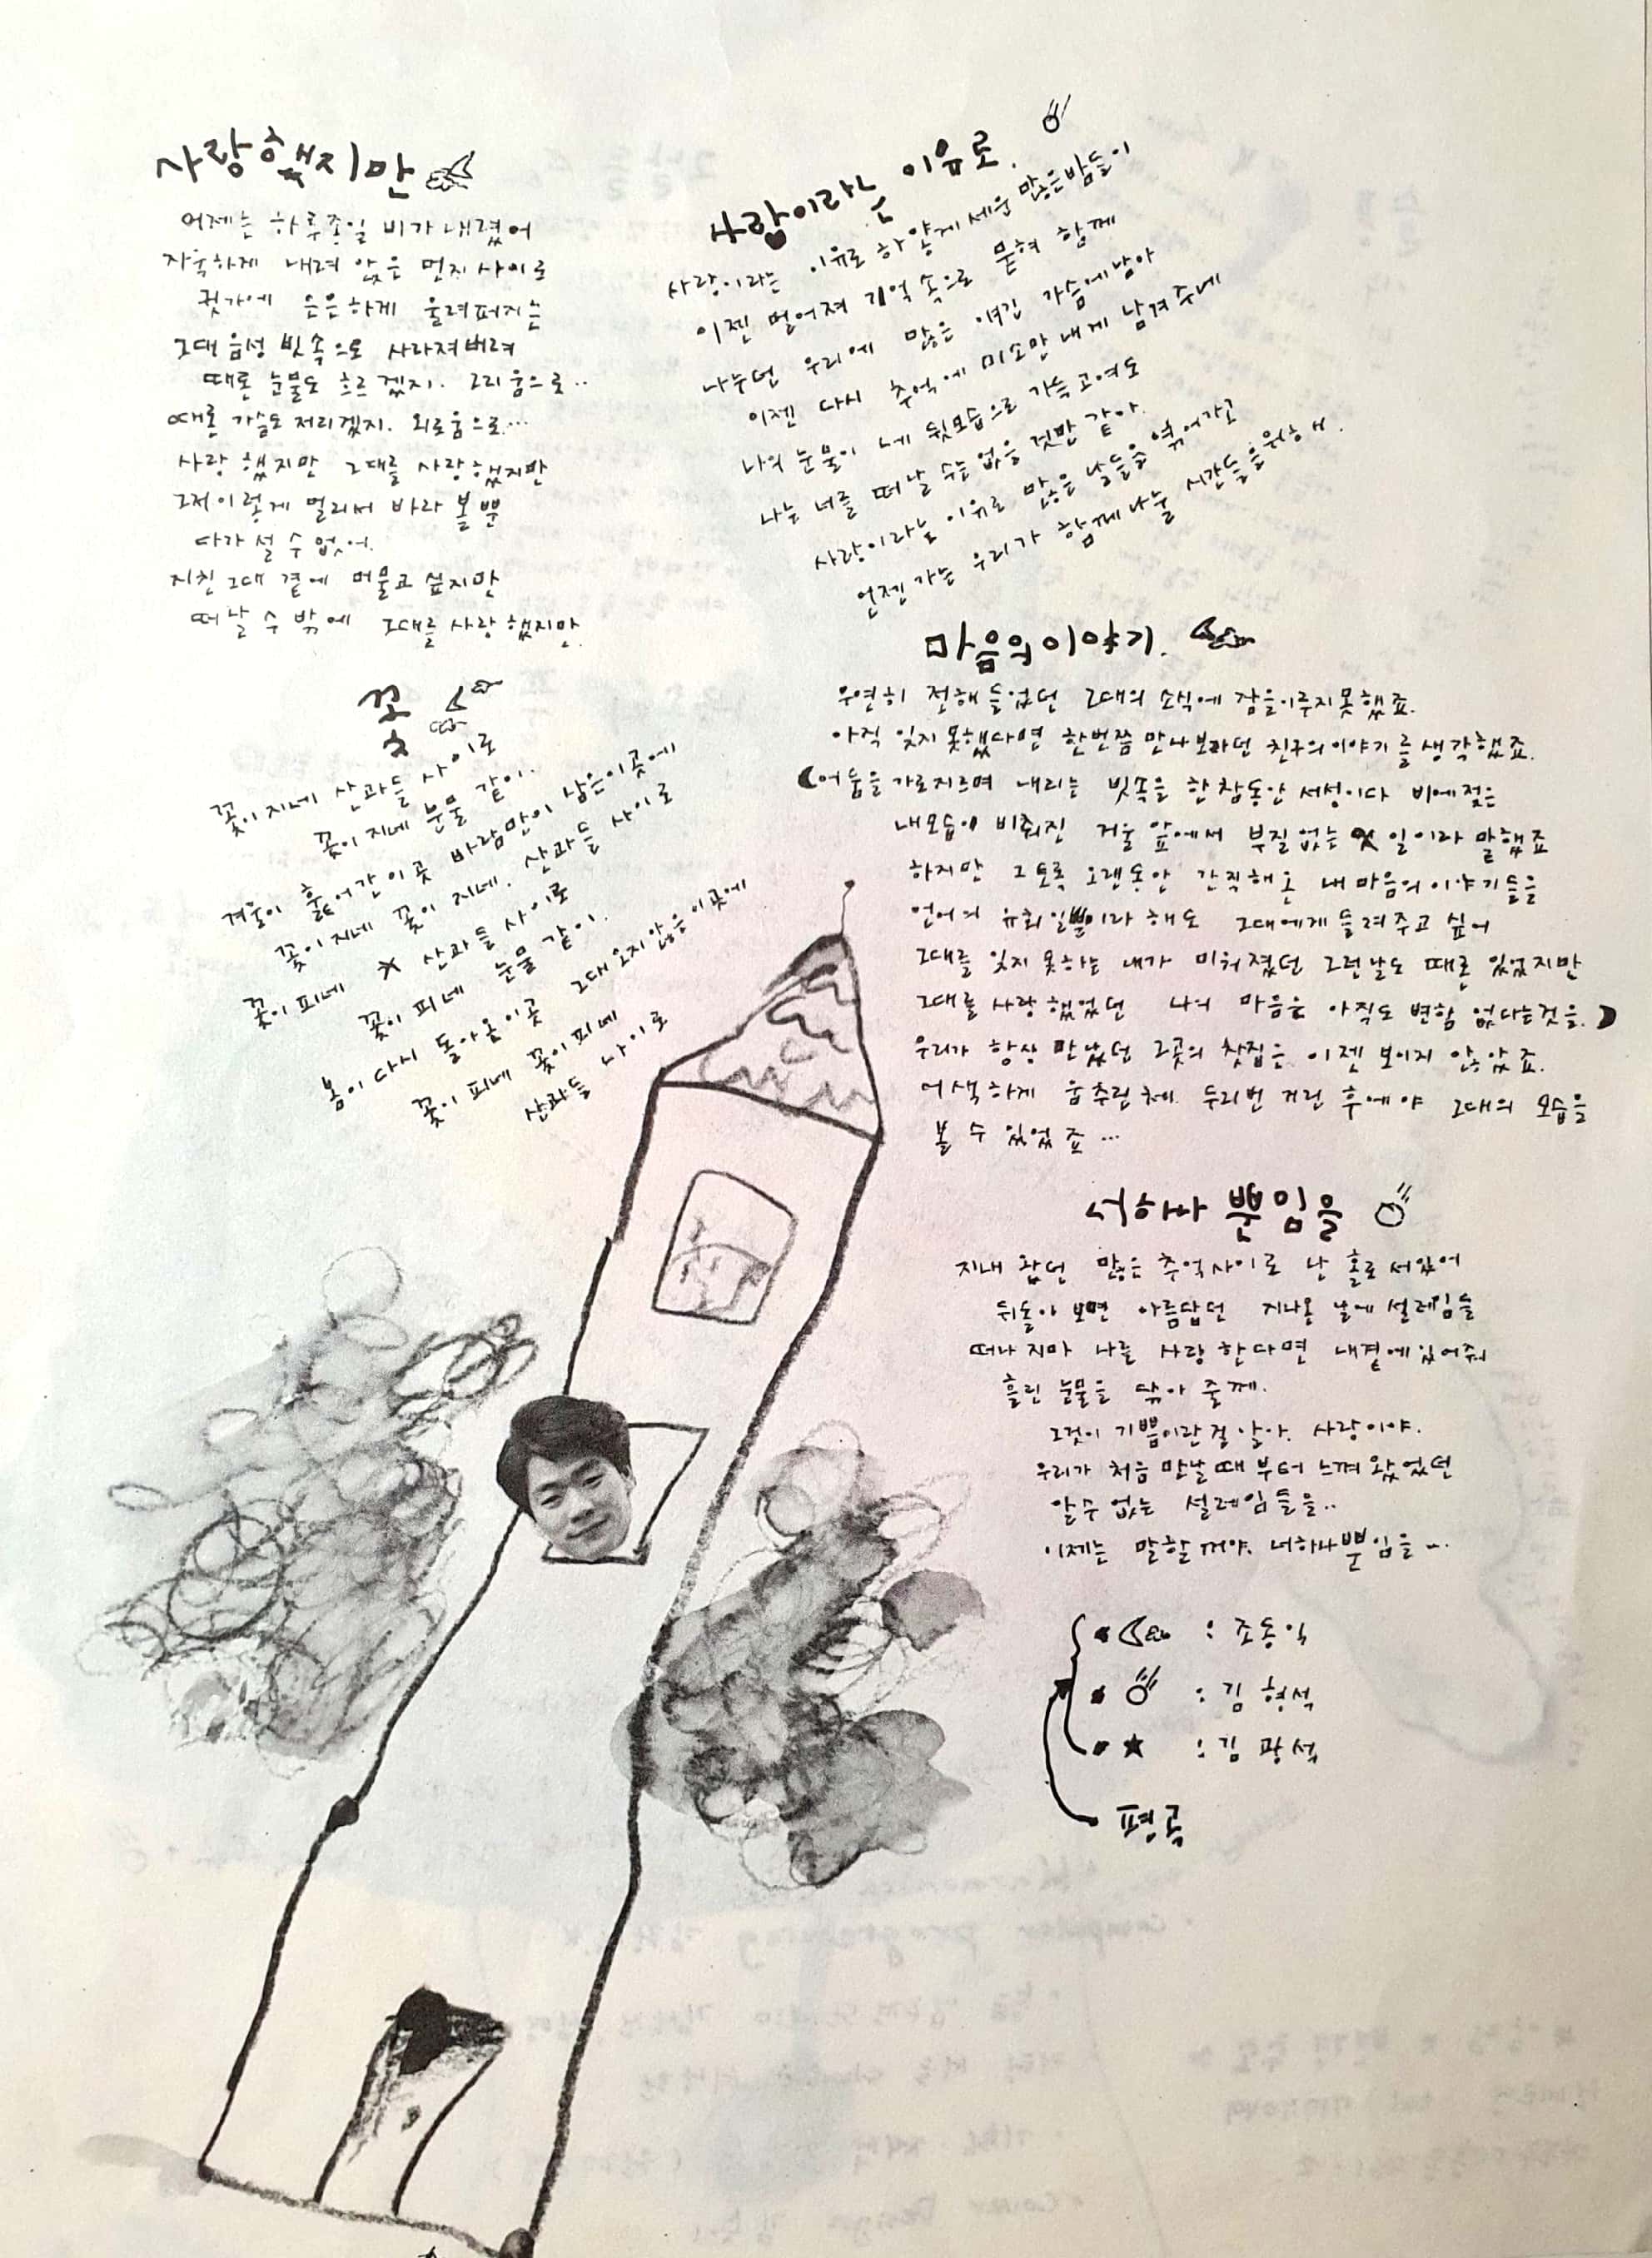 사랑했지만
어제는 하루종일 비가 내렸어
자욱하게 내려 앉은 먼지 사이로
귓가에 은은하게 울려퍼지는
그대 음성 빗속으로 사라져버려
때론 눈물도 흐르겠지. 그리움으로..
때론 가슴도 저리겠지. 외로움으로...
사랑 했지만 그대를 사랑했지만
그저이렇게 멀리서 바라 볼뿐
다가 설 수 없어.
지친 그대 곁에 머물고 싶지만
떠날 수 밖에 그대를 사랑했지만.
사랑이라는 이유로.
사랑이라는 이유로 하얗게 세운 많은밤들이
이젠 멀어져 기억 속으로 묻혀 함께
나누던 우리에 많은 얘긴 가슴에남아
이젠 다시 추억에 미소만 내게 남겨주네
나의 눈물이 네 뒷모습으로 가득 고여도
나는 너를 떠날 수는 없을 것만 같아.
사랑이라는 이유로 많은 날들을 엮어가고
언젠가는 우리가 함께나눌 시간들을위해서.
꽃
꽃이 지네 산과들 사이로
꽃이 지네 눈물 같이.
겨울이 훑어간 이곳 바람만이 남은이곳에
꽃이 지네 꽃이 지네. 산과들 사이로
꽃이 피네 산과들 사이로
꽃이 피네 눈물 같이.
봄이 다시 돌아온이곳 그대 오지않은이곳에
꽃이 피네 꽃이 피네
산과들 사이로
마음의 이야기.
우연히 전해 들었던 그대의 소식에 잠을이루지못했죠.
아직 잊지 못했다면 한번쯤 만나보라던 친구의이야기를 생각했죠.
어둠을 가로지르며 내리는 빗속을 한참동안 서성이다 비에젖은
내모습이 비춰진 거울 앞에서 부질없는 일이라 말했죠
하지만 그토록 오랜동안 간직해온 내 마음의 이야기들을
언어의 유희일뿐이라 해도 그대에게 들려주고 싶어
그대를 잊지 못하는 내가 미워졌던 그런날도 때론 있었지만
그대를 사랑했었던 나의 마음은 아직도 변함 없다는것을.
우리가 항상 만났던 그곳의 찻집은 이젠 보이지 않았죠.
어색하게 움추린체 두리번 거린 후에야 그대의 모습을
볼 수 있었죠...
너하나 뿐임을
지내 왔던 많은 추억사이로 난 홀로 서있어
뒤돌아 보면 아름답던 지나온 날에 설레임들
떠나지마 나를 사랑한다면 내곁에있어줘
흘린 눈물을 닦아 줄께.
그것이 기쁨이란걸 알아. 사랑이야.
우리가 처음 만날때 부터 느껴 왔었던
알수 없는 설레임들을..
이제는 말할꺼야. 너하나뿐임을...
: 조동익
: 김 형석
★ : 김 광석
편곡